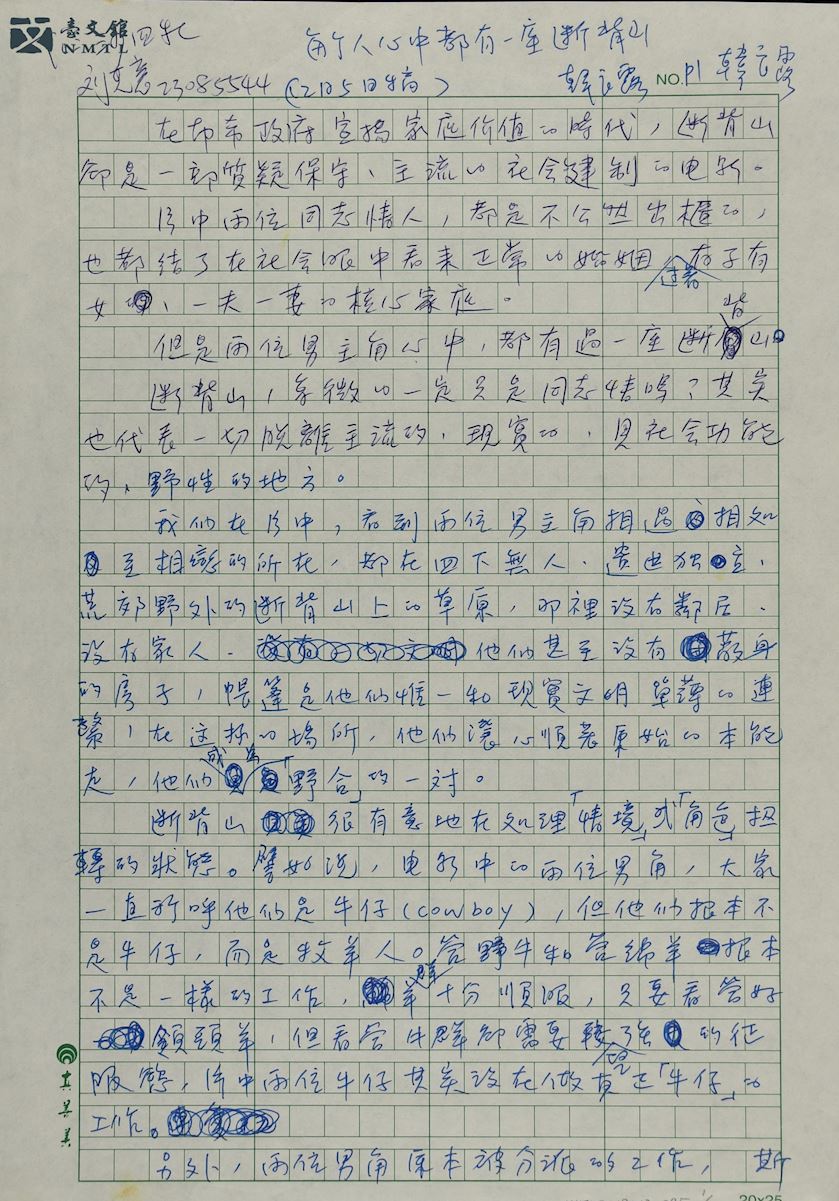 臺文館
NMTL
每个人心中都有一座断背山
23085544 (2月5日 )
韓良露 NO. P1 韓良露
在布希政府宣揚家庭价值的時代，断背山
卻是一部質疑保守、主流的社会建制的电影。
片中兩位同志情人，都是不公然出櫃的，
也都結了在社会眼中看来正常的婚姻，过著有子有
女、一夫一妻的核心家庭。
但是兩位男主角心中，都有過一座断背山。
断背山，象徵的一定只是同志情嗎？其实
也代表一切脱離主流的、現實的、具社会功能
的、野性的地方。
我们在片中，看到兩位男主角相遇相知
至相戀的所在，都在四下無人、遺世独立、
荒郊野外的断背山上的草原，那裡没有鄰居、
没有家人、他们甚至没有蔽身
的房子，帳篷是他们惟一和現實文明單薄的連
繫，在这样的場所，他们瀼心順著原始的本能
走，他们成為「野合」的一对。
断背山很有意地在处理「情境」或「角色」扭
轉的狀態。譬如说，电影中的兩位男角，大家
一直所呼他们是牛仔(cowboy)，但他们根本不
是牛仔，而是牧羊人。管野牛和管綿羊根本
不是一樣的工作，羊群十分順服，只要看管好
領頭羊，但看管牛群卻需要較強的征
服慾，片中兩位牛仔其实没在做真正「牛仔」的
工作。
另外，兩位男角原本被分派的工作，
20×25